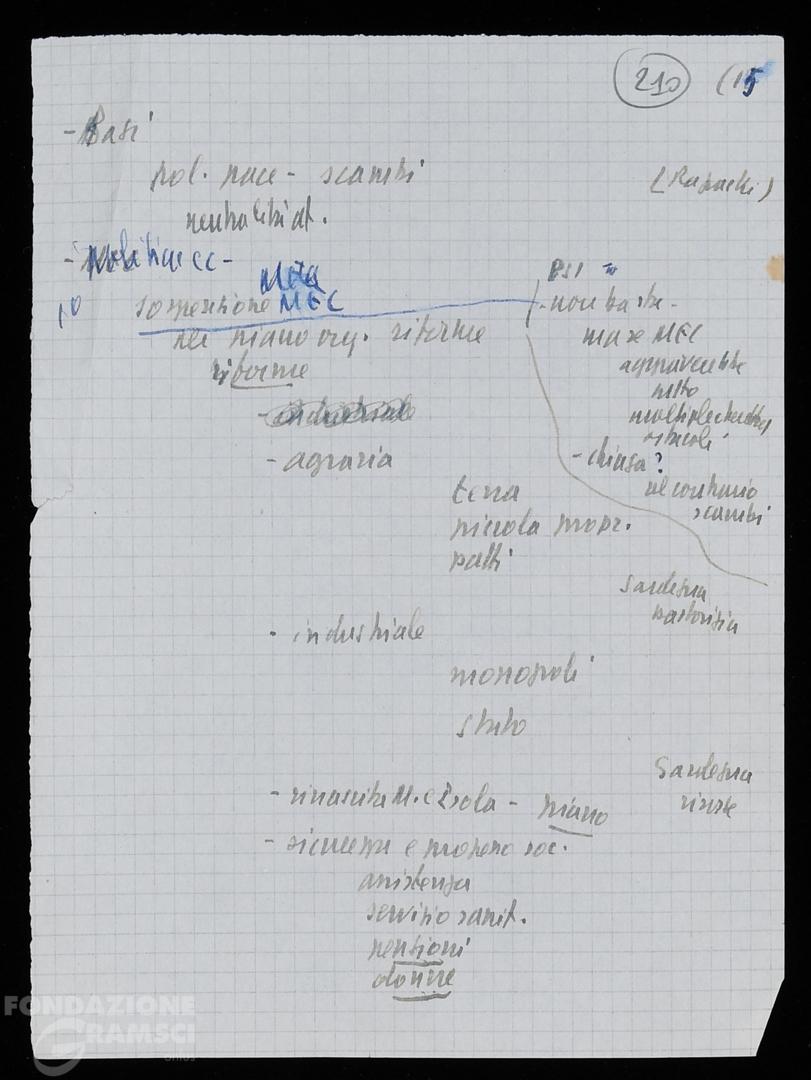 210 (15
- Basi
pol. pace - scambi
(Rapacki)
neutralità at.
- Politica ec -
Meta
PSI =
1º sospensione MEC
- non basta -
nel piano org. riforme
ma se MEC
riforme
aggraverebbe
tutto
moltiplicherebbe
ostacoli
- agraria
- chiusa?
al contrario
scambi
terra
piccola propr.
patti
Sardegna
pastorizia
- industriale
monopoli
stato
Sardegna
- rinascita M. e Isola - piano
- sicurezza e progresso soc.
assistenza
servizio sanit.
pensioni
donne
FONDAZIONE
GRAMSCI
onlus